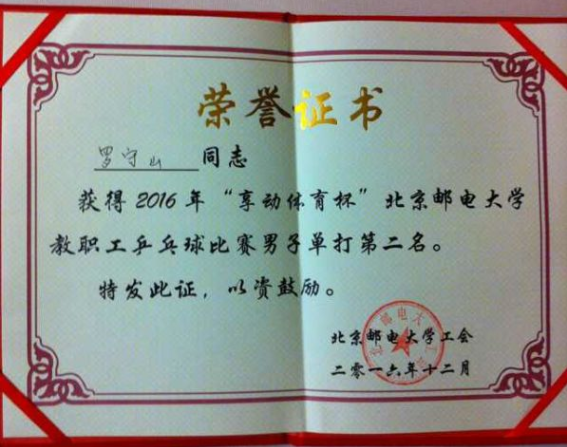 荣誉证书
罗守山 同志
获得2016年“享动体育杯”北京邮电大学
教职工乒乓球比赛男子单打第二名。
特发此证，以资鼓励。
北京邮电大学工会
二零一六年十二月
北京邮电大学工会